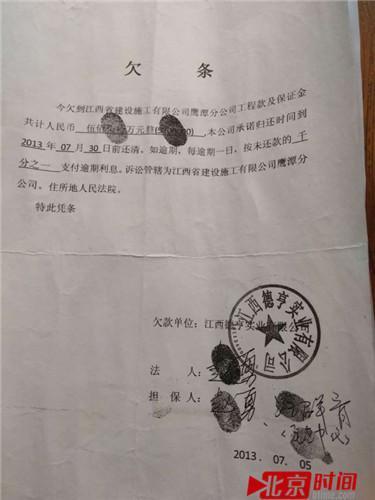 欠 条
今欠到江西省建设施工有限公司鹰潭分公司工程款及保证金
共计人民币 伍佰 万元整 00),本公司承诺归还时间到
2013 年 07 月 30 日前还清。如逾期,每逾期一日,按未还款的 千
分之一 支付逾期利息。诉讼管辖为江西省建设施工有限公司鹰潭分
公司。住所地人民法院。
特此凭条
欠款单位:江西德亨实业有限公司
江西德亨实业有限公司
法 人: 勇
担 保 人: 勇、
2013. 07. 05
北京时间